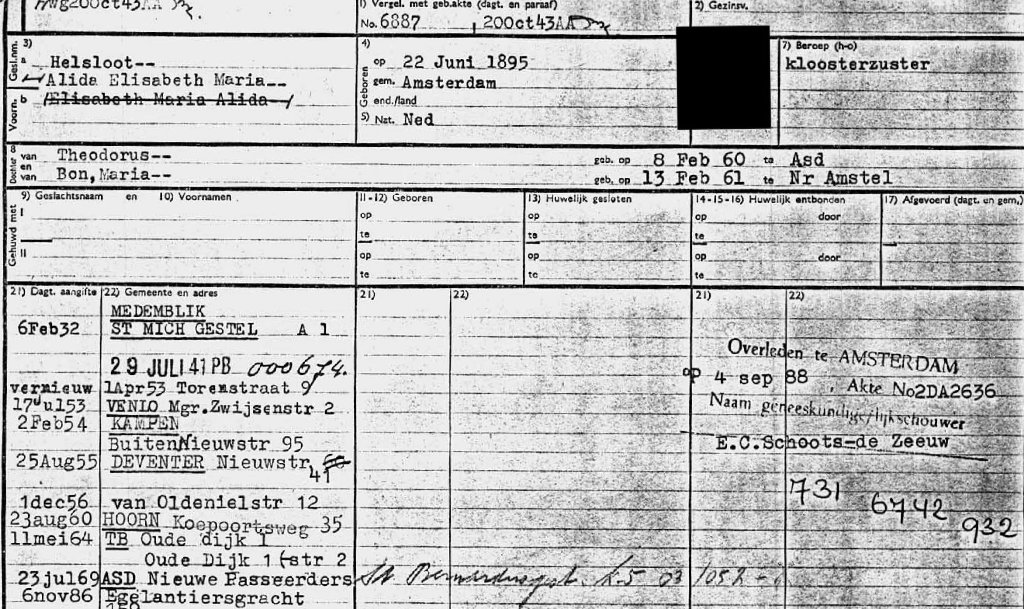 Hwg20Oct43AA
1) Vergel. met geb.akte (dagt. en paraaf)
No. 6887 , 20Oct43AA
2) Gezinsv.
Gesl.nm. 3)
a Helsloot--
Alida Elisabeth Maria--
Voorn. b /Elisabeth Maria Alida--/
4)
Geboren
op 22 Juni 1895
gem. Amsterdam
end./land
5) Nat. Ned
7) Beroep (h-o)
kloosterzuster
Dochter 8
van Theodorus-- geb. op 8 Feb 60 te Asd
en
van Bon, Maria-- geb. op 13 Feb 61 te Nr Amstel
9) Geslachtsnaam en 10) Voornamen
11-12) Geboren
13) Huwelijk gesloten
14-15-16) Huwelijk ontbonden
17) Afgevoerd (dagt. en gem.)
Gehuwd met
I op op op door
te te te
II op op op door
te te te
21) Dagt. aangifte 22) Gemeente en adres 21) 22) 21) 22)
MEDEMBLIK
6Feb32 ST MICH GESTEL A 1
29 JULI 41 PB 000674.
vernieuw 1Apr53 Torenstraat 9
17Jul53 VENLO Mgr.Zwijsenstr 2
2Feb54 KAMPEN
BuitenNieuwstr 95
25Aug55 DEVENTER Nieuwstr
41
1dec56 van Oldenielstr 12
23aug60 HOORN Koepoortsweg 35
11mei64 TB Oude dijk 1
Oude Dijk 1 str 2
23jul69 ASD Nieuwe Passeerders
6nov86 Egelantiersgracht
Overleden te AMSTERDAM
op 4 sep 88 , Akte No2DA2636
Naam geneeskundige/lijkschouwer
E.C.Schoots-de Zeeuw
731
6742
932